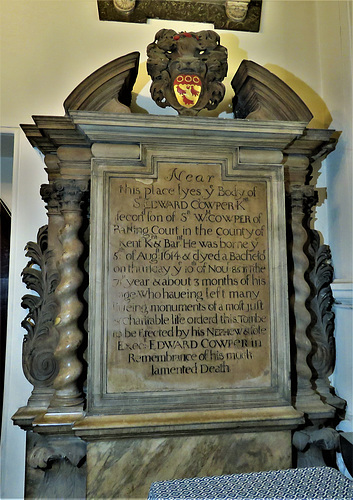 Near
This place lyes yͤ Body of
Sͬ EDWARD COWPER Kͭ
second son of Sͬ Wͫ COWPER of
Ratling Court in the County of
Kent Kͭ & Barͭ He was borne yͤ
of Augͭ 1614 & dyed a Bachelͬ
on thursday yͤ 10ͭͪ of Nou
year & about 3 months of his
age Who haueing left many
liueing monuments of a most just
& charitable life orderd this Tomb
to be Erected by his NEPHEW & sole
Execͬ EDWARD COWPER in
Remembrance of his much
lamented Death